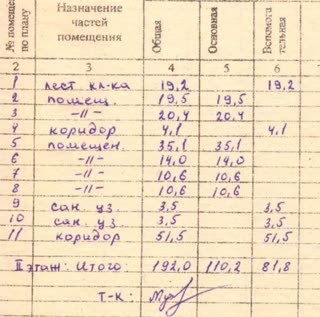 № помеще по плану | Назначение частей помещения | Общая | Основная | Вспомога тельная
2 | 3 | 4 | 5 | 6
1 | лест. кл-ка | 19,2 | | 19,2
2 | помещ. | 19,5 | 19,5
3 | -"- | 20,4 | 20,4
4 | коридор | 4,1 | | 4,1
5 | помещен. | 35,1 | 35,1
6 | -"- | 14,0 | 14,0
7 | -"- | 10,6 | 10,6
8 | -"- | 10,6 | 10,6
9 | сан. уз. | 3,5 | | 3,5
10 | сан. уз. | 3,5 | | 3,5
11 | коридор | 51,5 | | 51,5
II этаж: Итого: | 192,0 | 110,2 | 81,8
Т-к: